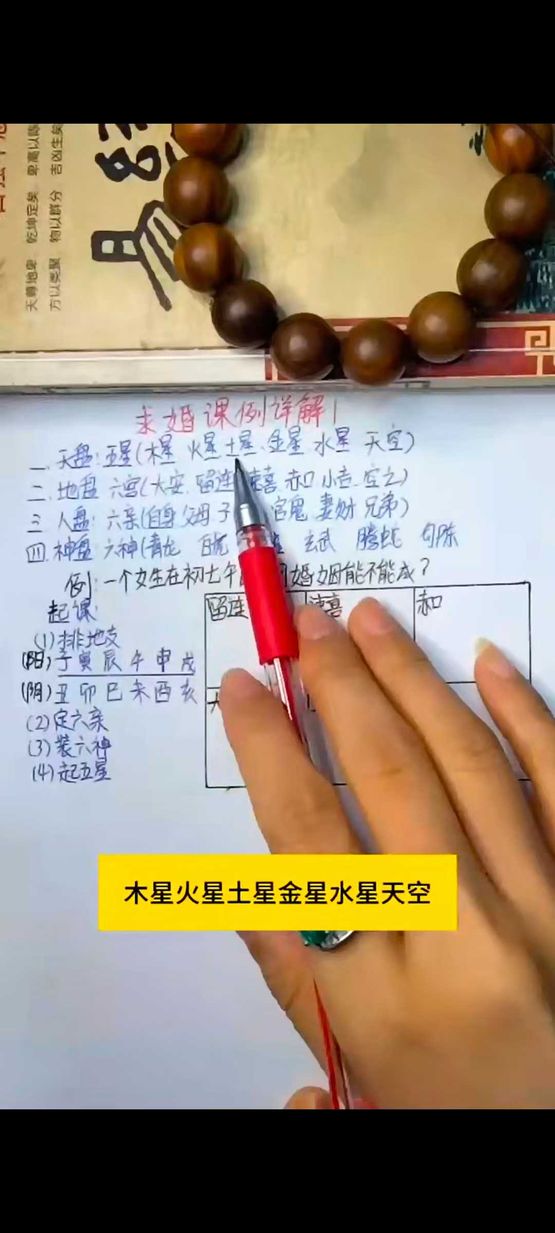 天尊地卑 乾坤定矣 卑高以陈
方以类聚 物以群分 吉凶生矣
求婚课例详解1
一、天盘:五星(木星 火星 土星、金星 水星 天空)
二、地盘 六宫(大安、留连 速喜 赤口 小吉、空亡)
三 人盘:六亲(自身 父母 子 官鬼 妻财 兄弟)
四、神盘 六神(青龙 白虎 玄武 腾蛇 勾陈
例:一个女生在初七午 婚姻能不能成?
起课:
(1)排地支
(阳)子寅辰午申戌
(阴)丑卯巳未酉亥
(2)定六亲
(3)装六神
(4)起五星
留连 速喜 赤口
木星火星土星金星水星天空